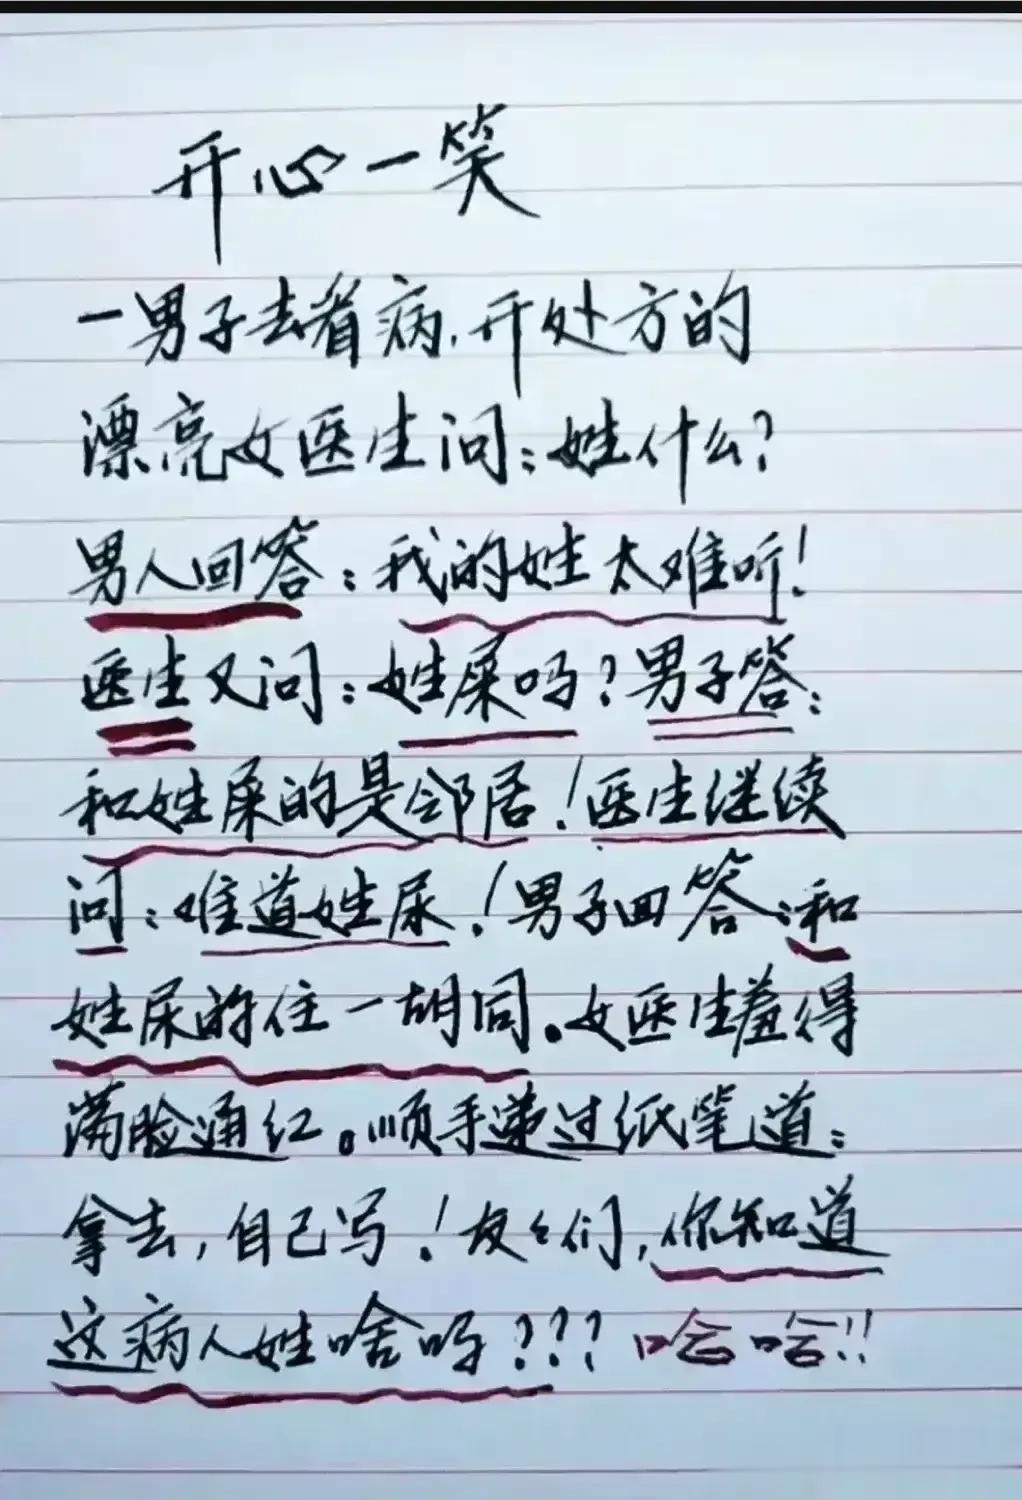 开心一笑
一男子去看病,开处方的
漂亮女医生问:姓什么?
男人回答:我的姓太难听!
医生又问:姓屎吗?男子答:
和姓屎的是邻居!医生继续
问:难道姓尿!男子回答:和
姓尿的住一胡同。女医生羞得
满脸通红。顺手递过纸笔道:
拿去,自己写!友友们,你知道
这病人姓啥吗???哈哈!!